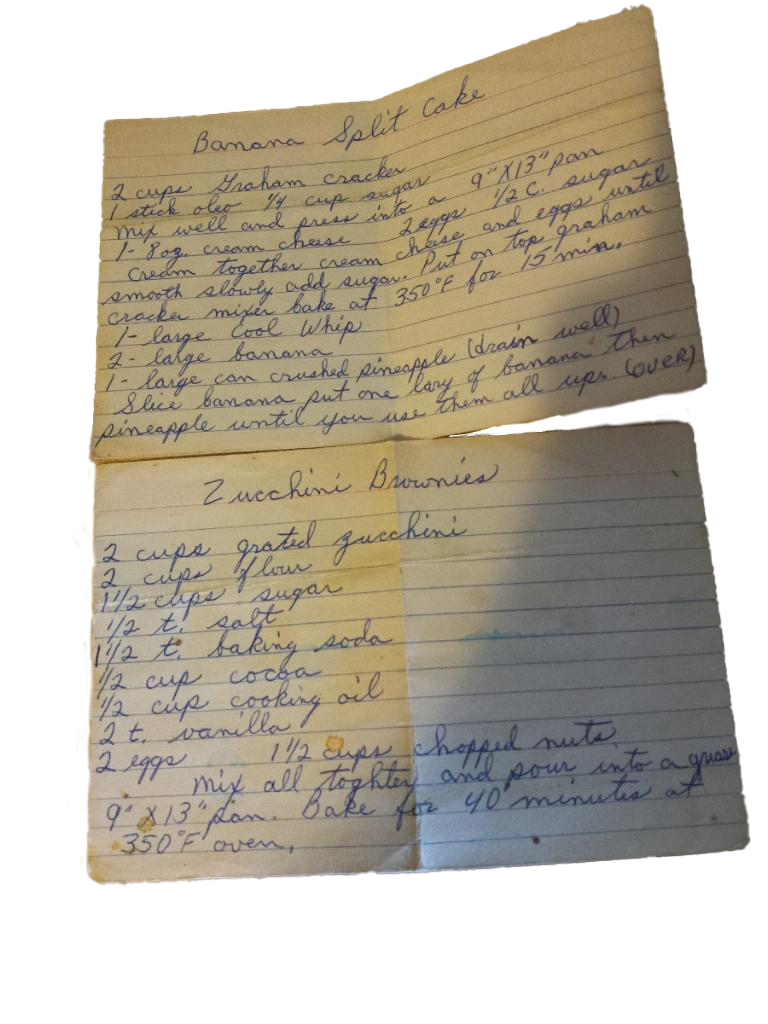 Banana Split Cake
2 cups Graham cracker
1 stick oleo 1/4 cup sugar
Mix well and press into a 9" X 13" pan
1- 8 og. cream cheese 2 eggs 1/2 c. sugar
Cream together cream chease and eggs until
smooth slowly add sugar. Put on top graham
cracker mixer bake at 350°F for 15 min.
1- large Cool Whip
2- large banana
1- large can crushed pineapple (drain well)
Slice banana put one lary of banana then
pineapple until you use them all up. (OVER)
Zucchini Brownies
2 cups grated zucchini
2 cups flour
1 1/2 cups sugar
1/2 t. salt
1 1/2 t. baking soda
1/2 cup cocoa
1/2 cup cooking oil
2 t. vanilla
2 eggs 1 1/2 cups chopped nuts
Mix all toghter and pour into a
9" X 13" pan. Bake for 40 minutes at
350°F oven.